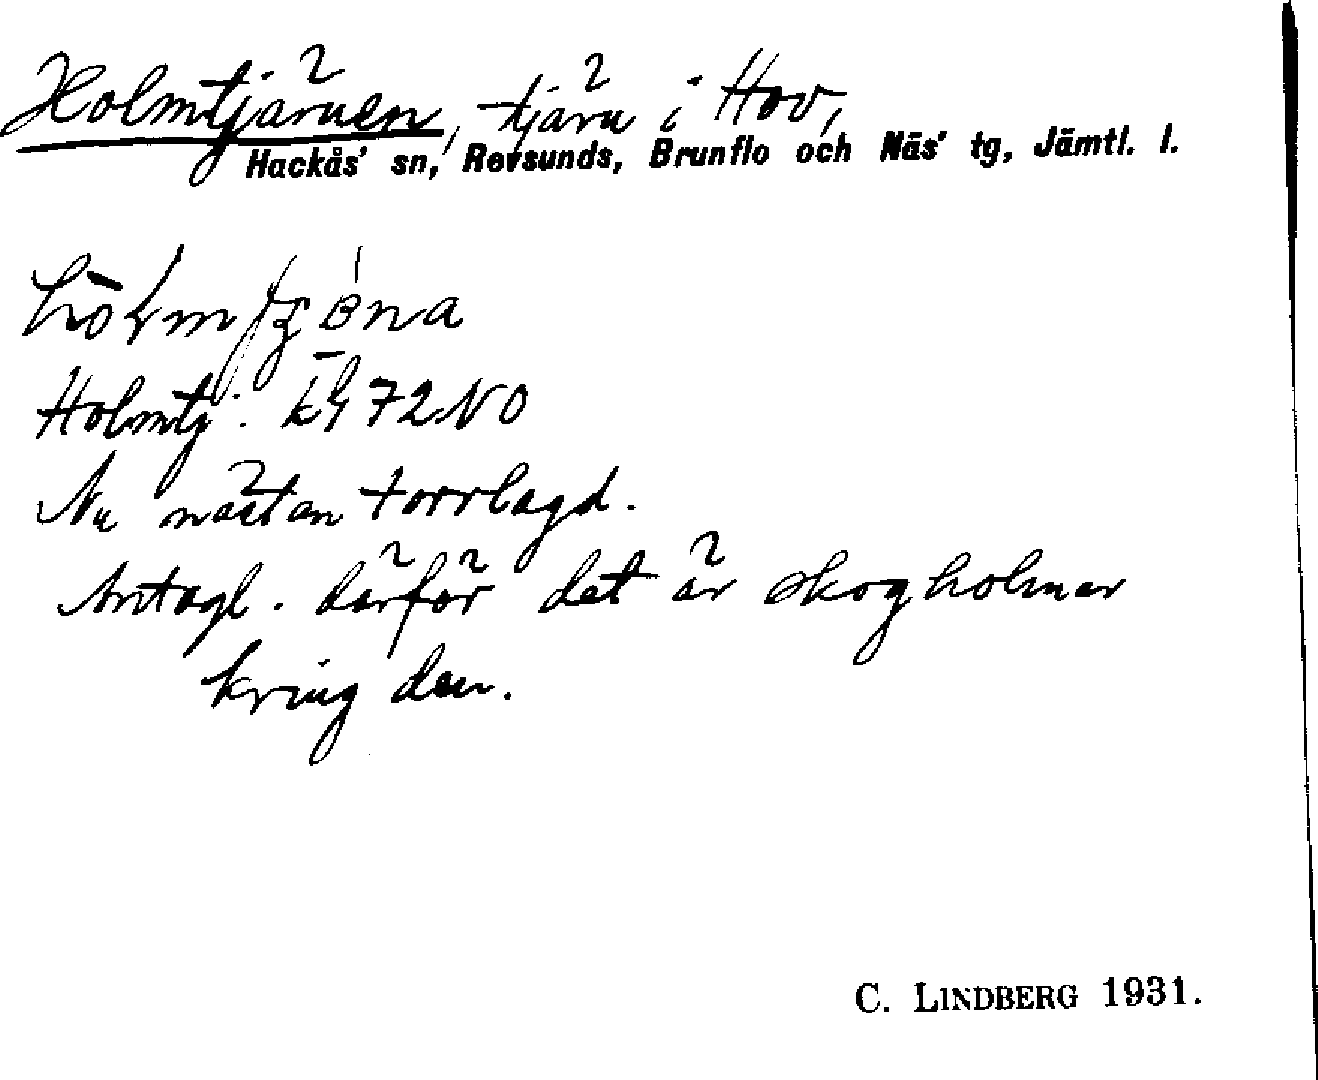 Holmtjärnen, tjärn i Hov,
Hackås' sn, Revsunds, Brunflo och Näs' tg, Jämtl. l.
Holmtj. 72 NO
Nu nästan torrlagd.
Antagl. därför det är skogholmar
kring den.
C. LINDBERG 1931.